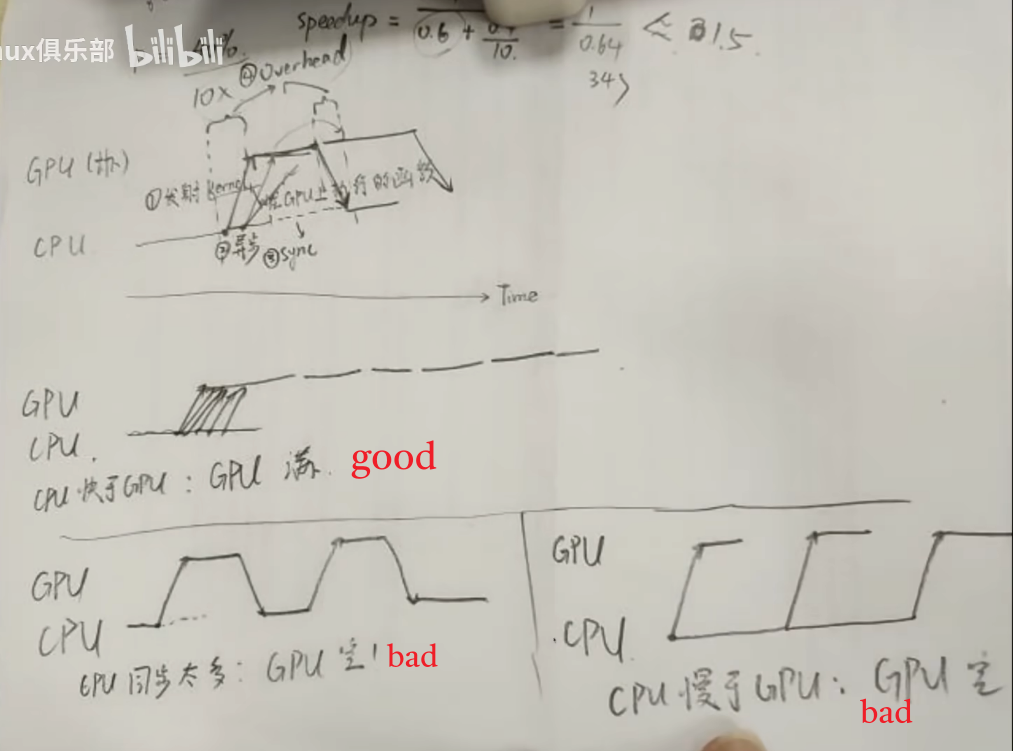 nux俱乐部 bilibili
speedup = 0.6 + 10. = 1 0.64 ≪ 1.5.
④ Overhead
10x
GPU (协)
① 长时 Kernel 在GPU上执行的函数
CPU
② 异步 ③ Sync
Time
GPU
CPU.
CPU 快于GPU : GPU 满. good
GPU
CPU
GPU 同步太多: GPU 空! bad
GPU
CPU
CPU 慢于GPU: GPU 空
bad